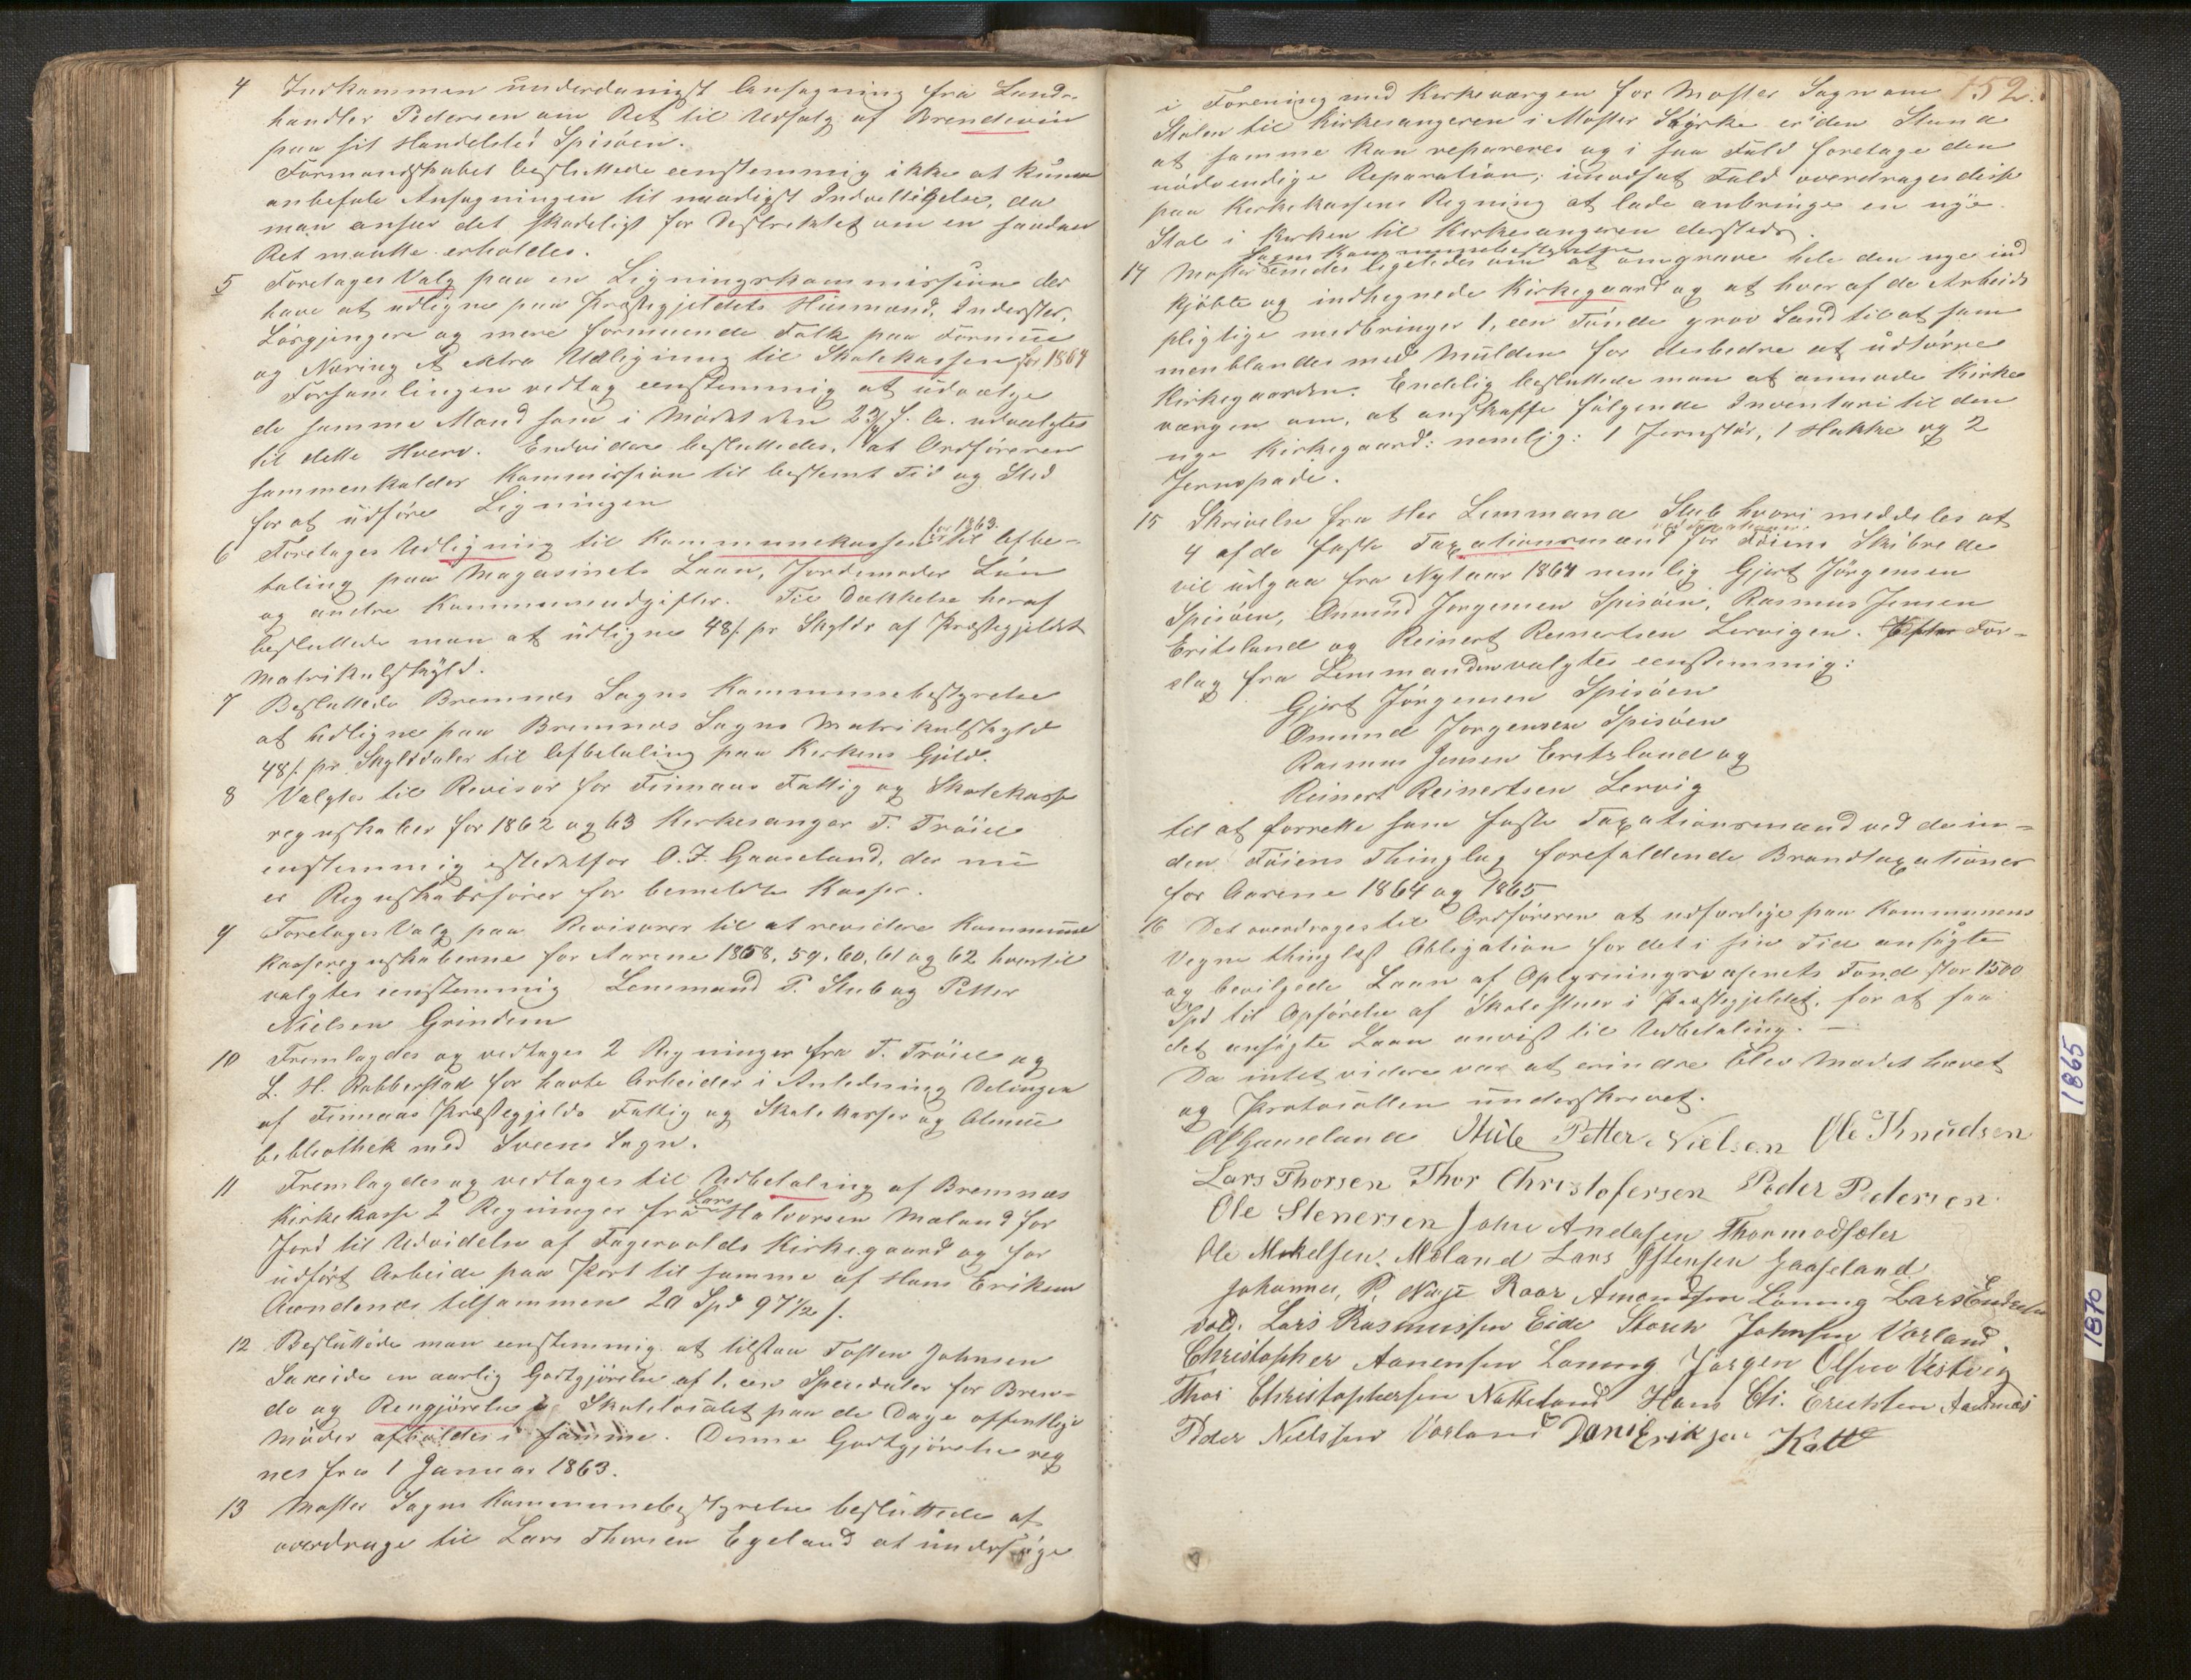 4 Indkommen underdanigst Ansøgning fra Land-
handler Pedersen om Ret til Udsalg af Brendeviin
paa sit Handelsted Spisøen.
Formandskabet besluttede eenstemmig ikke at kunne
anbefale Ansøgningen til naadigst Indvilligelse, da
man anseer det skadeligt for Destriktet om en saadan
Ret maatte erholdes.
5 Foretages Valg paa en Ligningskommission der
have at udligne paa Præstegjeldets Huusmænd, Inderster,
Løsgjengere og mere formuende Folk paa Formue
og Næring Extra Udligning til Skolekassen for 1864
Forsamlingen vedtag eenstemmig at udvælge
de samme Mænd som i Mødet den f. A. udvalgtes
til dette Hverv. Endvidere besluttedes, at Ordføreren
sammenkalder Kommission til bestemt Tid og Sted
for at udføre Ligningen
6 Foretages Udligning til Kommunekassen for 1863. til Afbe-
taling paa Magasinets Laan, Jordemoder Løn
og andre Kommuneudgifter. Til Dækkelse heraf
besluttede man at udligne 48 s. pr Skyldr af Præstegjeldets
Matrikulskyld.
7 Besluttede Bremnes Sogns Kommunebestyrelse
at Udligne paa Bremnes Sogns Matrikulskyld
48 s. pr. Skylddaler til Afbetaling paa Kirkens Gjeld.
8 Valgtes til Revisor for Finnaas Fattig og Skolekasse
regnskaber for 1862 og 63 Kirkesanger T. Trøiel
enstemmig istedetfor O. J. Gaaseland, der nu
er Regnskabsfører for bemeldte Kasser.
9 Foretages Valg paa Revisorer til at revidere Kommune
kasseregnskaberne for Aarene 1858, 59, 60, 61 og 62 hvortil
valgtes eenstemmig Lensmand P. Stub og Petter
Nielsen Grindem
10 Fremlagdes og vedtages 2 Regninger fra T. Trøiel og
L. H. Robberstad for havte Arbeider i Anledning Delingen
af Finnaas Præstegjelds Fattig og Skolekasser og Almue
bibliothek med Sveens Sogn.
11 Fremlagdes og vedtages til Udbetaling af Bremnæs
Kirkekasse 2 Regninger fra Lars Halvorsen Mæland for
Jord til Udvidelse af Fagervolds Kirkegaard og for
udført Arbeide paa Port til samme af Hans Eriksen
tilsammen 20 Spd 97 1/2 s.
12 Besluttede man eenstemmig at tilstaa Tosten Johnsen
en aarlig Godtgjørelse af 1, een Speciedaler for Bren-
de og Rengjørelse i Skolelocalet paa de Dage offentlige
Møder afholdes i samme. Denne Godtgjørelse reg
nes fra 1 Januar 1863.
13 Moster Sogns Kommunebestyrelse besluttede at
overdrage til Lars Thorsen Egeland at undersøge
152.
i Forening med Kirkeværgen for Moster Sogn om
Stolen til Kirkesangeren i Moster Kirke er i den Stand
at samme kan repareres og i saa Fald foretage den
nødvendige Reparation; i modsat Fald overdrages disse
paa Kirkekassens Regning at lade anbringe en nye
Stol i Kirken til Kirkesangeren dersteds.
Sogns Kommunebestyrelse
14 Moster enedes ligeledes om at omgrave hele den nye ind
kjøbte og indhegnede Kirkegaard og at hver af de Arbeids
pligtige medbringer 1, een Tønde grov Sand til at sam
menblandes med Mulden for desbedre at udtørre
Kirkegaarden. Endelig besluttede man at anmode Kirke
værgen om, at anskaffe følgende Inventari til den
nye Kirkegaard: nemlig: 1 Jernstør, 1 Hakke og 2
Jernspade.
15 Skrivelse fra Hr Lensmand Stub hvori meddeles at
4 af de faste Taxationsmænd for Føiens Skibrede
vil udgaa fra Nytaar 1864 nemlig Gjert Jørgensen
Spisøen, Omund Jørgensen Spisøen, Rasmus Jensen
Eritsland og Reinert Reinertsen Lervigen. Efter For-
slag fra Lensmanden valgtes eenstemmig:
Gjert Jørgensen Spisøen
Omund Jørgensen Spisøen
Rasmus Jensen Eritsland og
Reinert Reinertsen Lervig
til at forrette som faste Taxationsmænd ved de in-
den Føiens Thinglag forefaldende Brandtaxationer
for Aarene 1864 og 1865
16 Det overdroges til Ordføreren at udfærdige paa Kommunens
Vegne thinglæst Obligation for det i sin Tid ansøgte
og bevilgede Laan af Oplysningsvæsenets Fond stor 1500
Spd til Opførelse af Skolestuer i Præstegjeldet, for at faa
det ansøgte Laan anvist til Udbetaling. —
Da intet videre var at erindre blev Mødet hævet
og Protocollen underskrevet.
OJGaaseland Stub Petter Nielsen Ole Knudsen
Lars Thorsen Thor Christofersen Peder Pedersen
Ole Stenersen John Andersen Thormodsæter
Ole Mikelsen. Mæland Lars Østensen Gaaseland
Johannes, P. Roar Amondsen Løning Lars
vold. Lars Rasmussen Eide Johnsen Vorland
Christopher Aanensen Loning Jørgen Olsen Vestvig
Thor Christophersen Natteland Hans Ch. Erichsen
Peder Nielssen Vorland Daniel Eriksen Katle
1865
1870